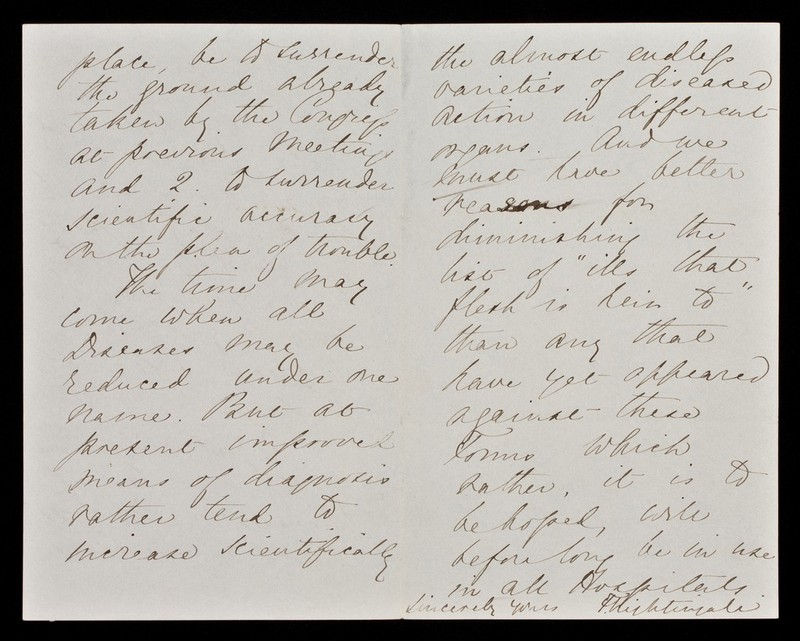 place, be to surrender
the ground already
taken by the Congress
at previous Meetings
and 2. to surrender
scientific accuracy
on the plea of trouble.
The time may
come when all
Diseases may be
reduced under one
name. But at
present improved
means of diagnosis
rather tend to
increase scientifically
the almost endless
varieties of diseased
action in different
organs. And we
must have better
reasons for
diminishing the
list of "ills that
flesh is heir to"
than any that
have yet appeared
against these
Forms which
rather, it is to
be hoped, will
before long be in use
in all Hospitals
Sincerely yours F. Nightingale